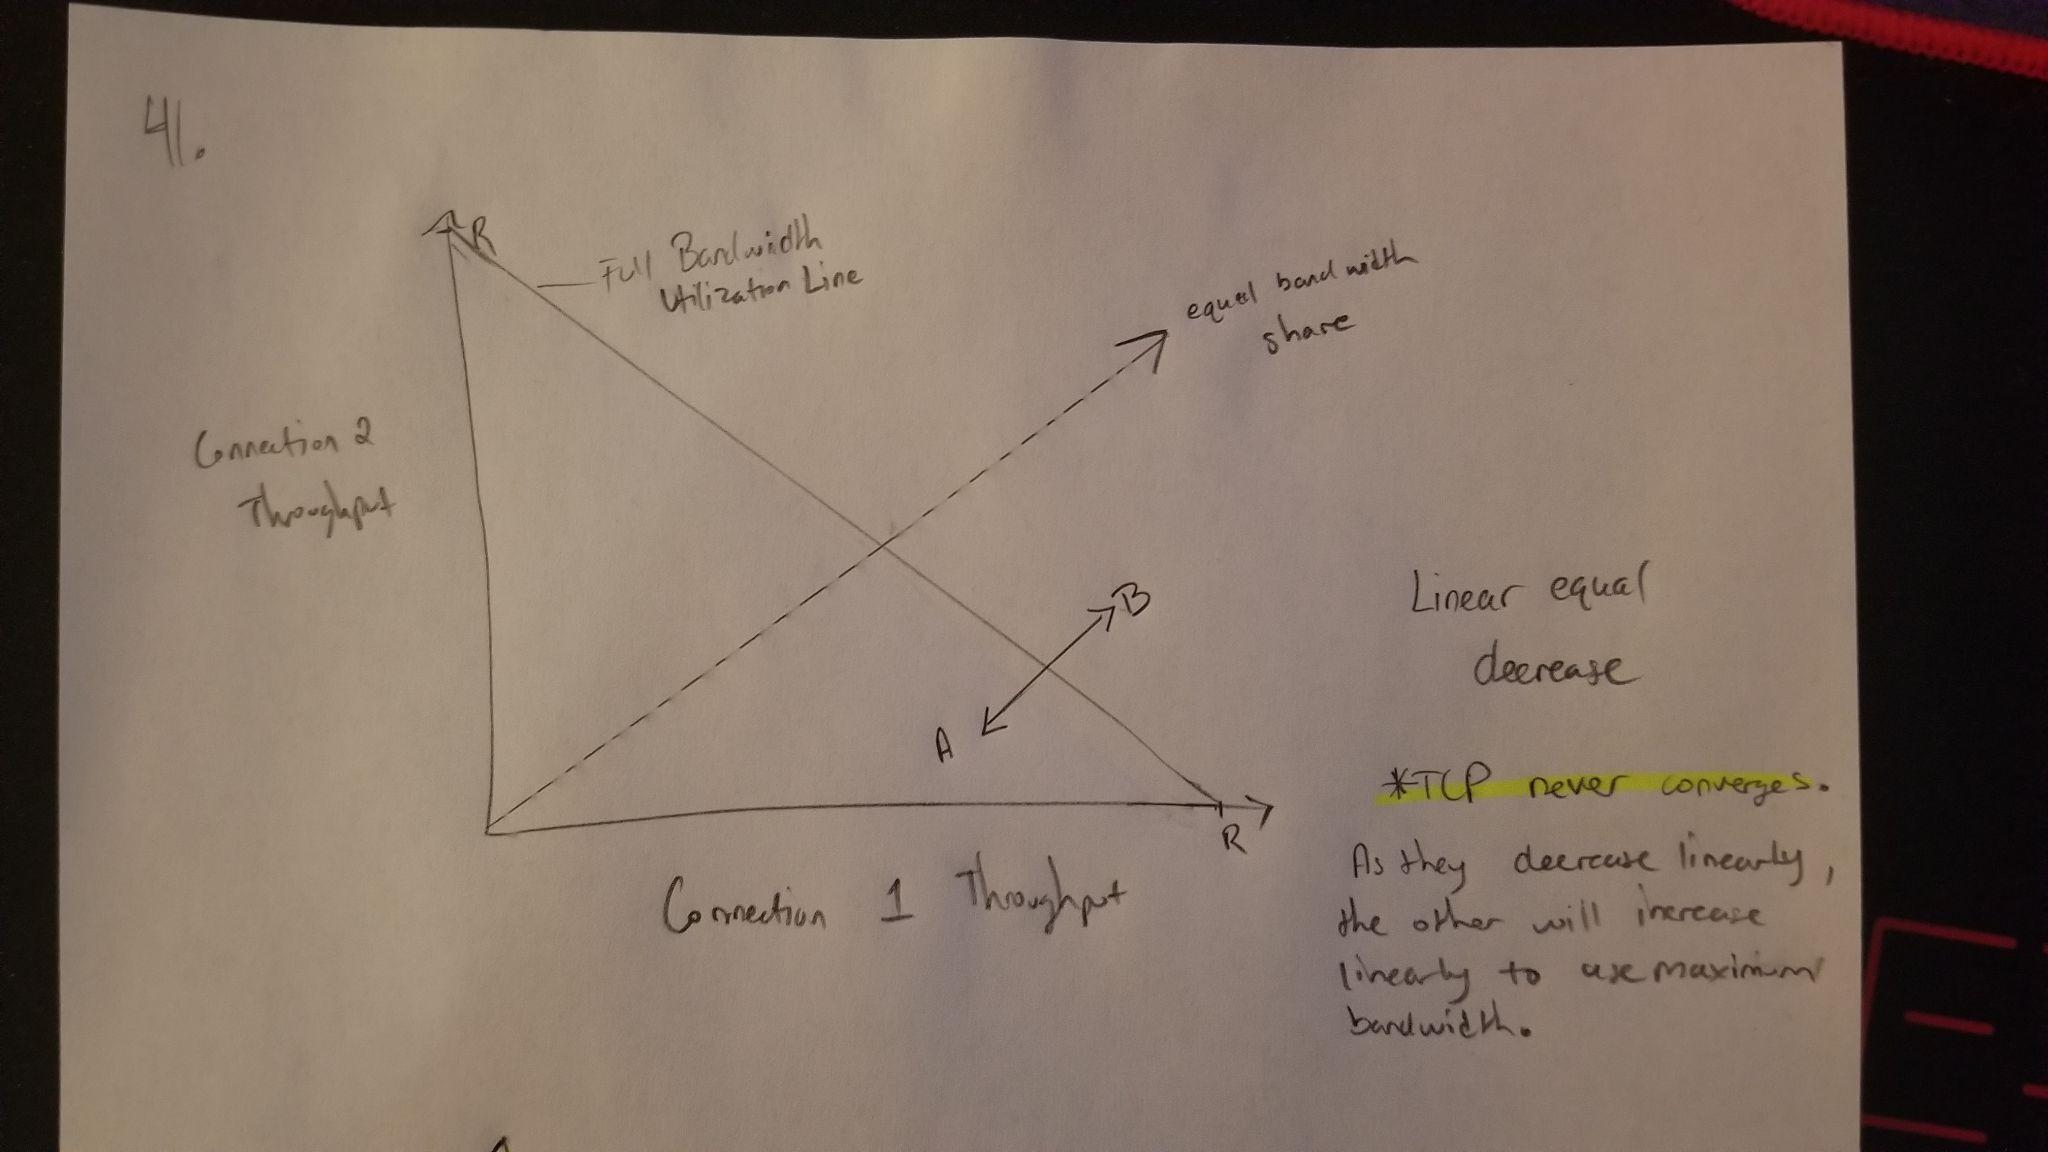 41.
R
Full Bandwidth
Utilization Line
equal bandwidth
share
Connection 2
Throughput
B
A
R
Connection 1 Throughput
Linear equal
decrease
*TCP never converges.
As they decrease linearly,
the other will increase
linearly to use maximum
bandwidth.